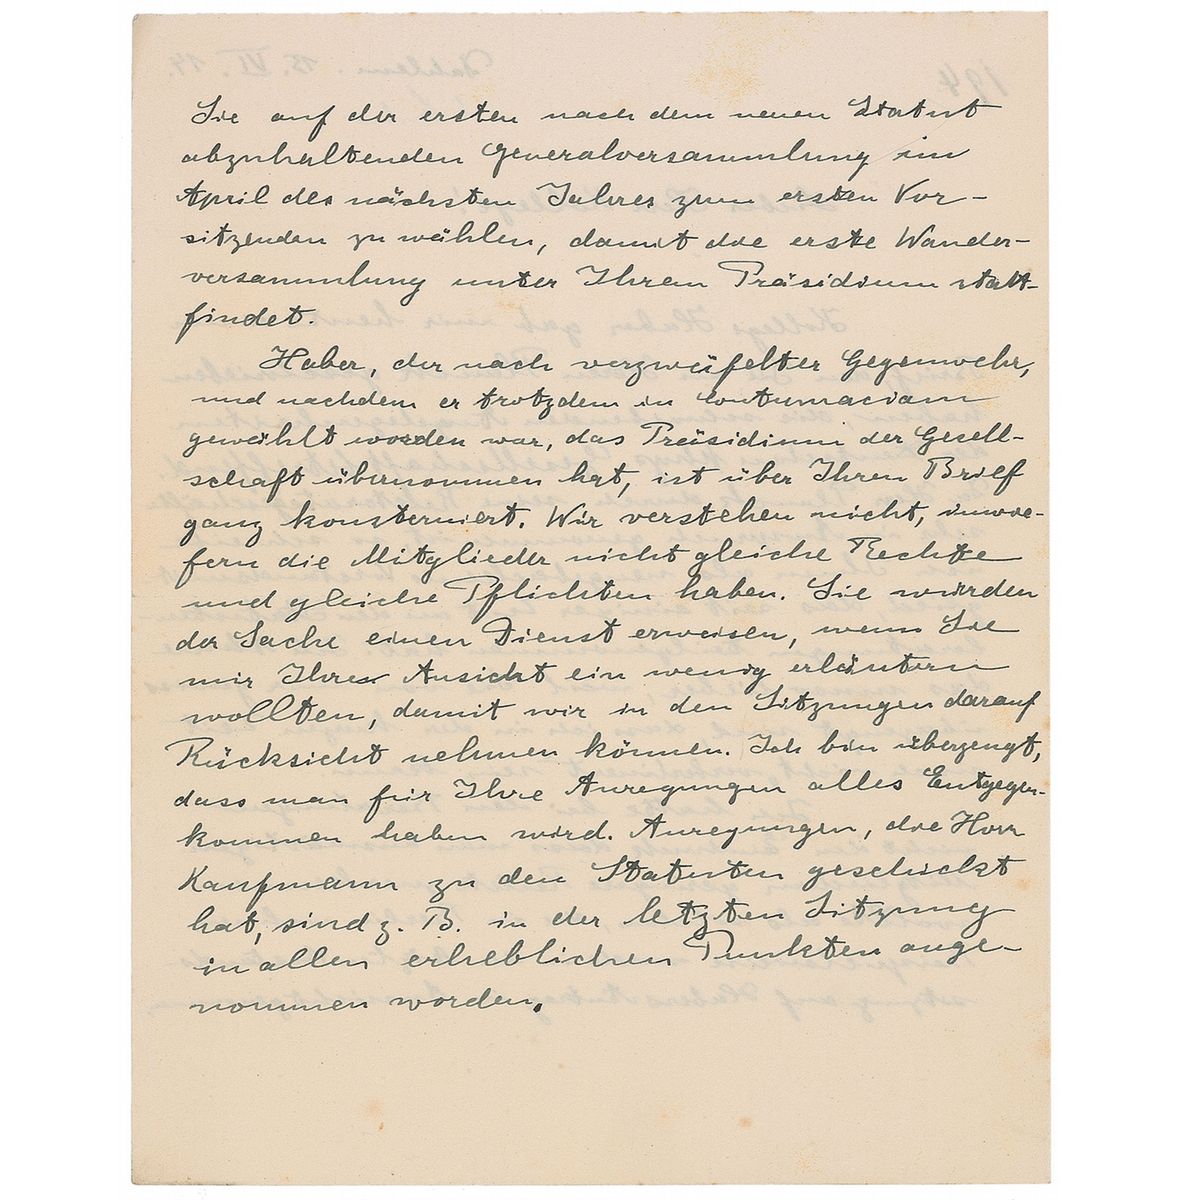 Sie auf der ersten nach dem neuen Statut
abzuhaltenden Generalversammlung im
April des nächsten Jahres zum ersten Vor-
sitzenden zu wählen, damit die erste Wander-
versammlung unter Ihrem Präsidium statt-
findet.
Haber, der nach verzweifelter Gegenwehr,
und nachdem er trotzdem in contumaciam
gewählt worden war, das Präsidium der Gesell-
schaft übernommen hat, ist über Ihren Brief
ganz konsterniert. Wir verstehen nicht, inwie-
fern die Mitglieder nicht gleiche Rechte
und gleiche Pflichten haben. Sie würden
der Sache einen Dienst erweisen, wenn Sie
mir Ihre Ansicht ein wenig erläutern
wollten, damit wir in den Sitzungen darauf
Rücksicht nehmen können. Ich bin überzeugt,
dass man für Ihre Anregungen alles Entgegen-
kommen haben wird. Anregungen, die Herr
Kaufmann zu den Statuten geschickt
hat, sind z. B. in der letzten Sitzung
in allen erheblichen Punkten ange-
nommen worden.